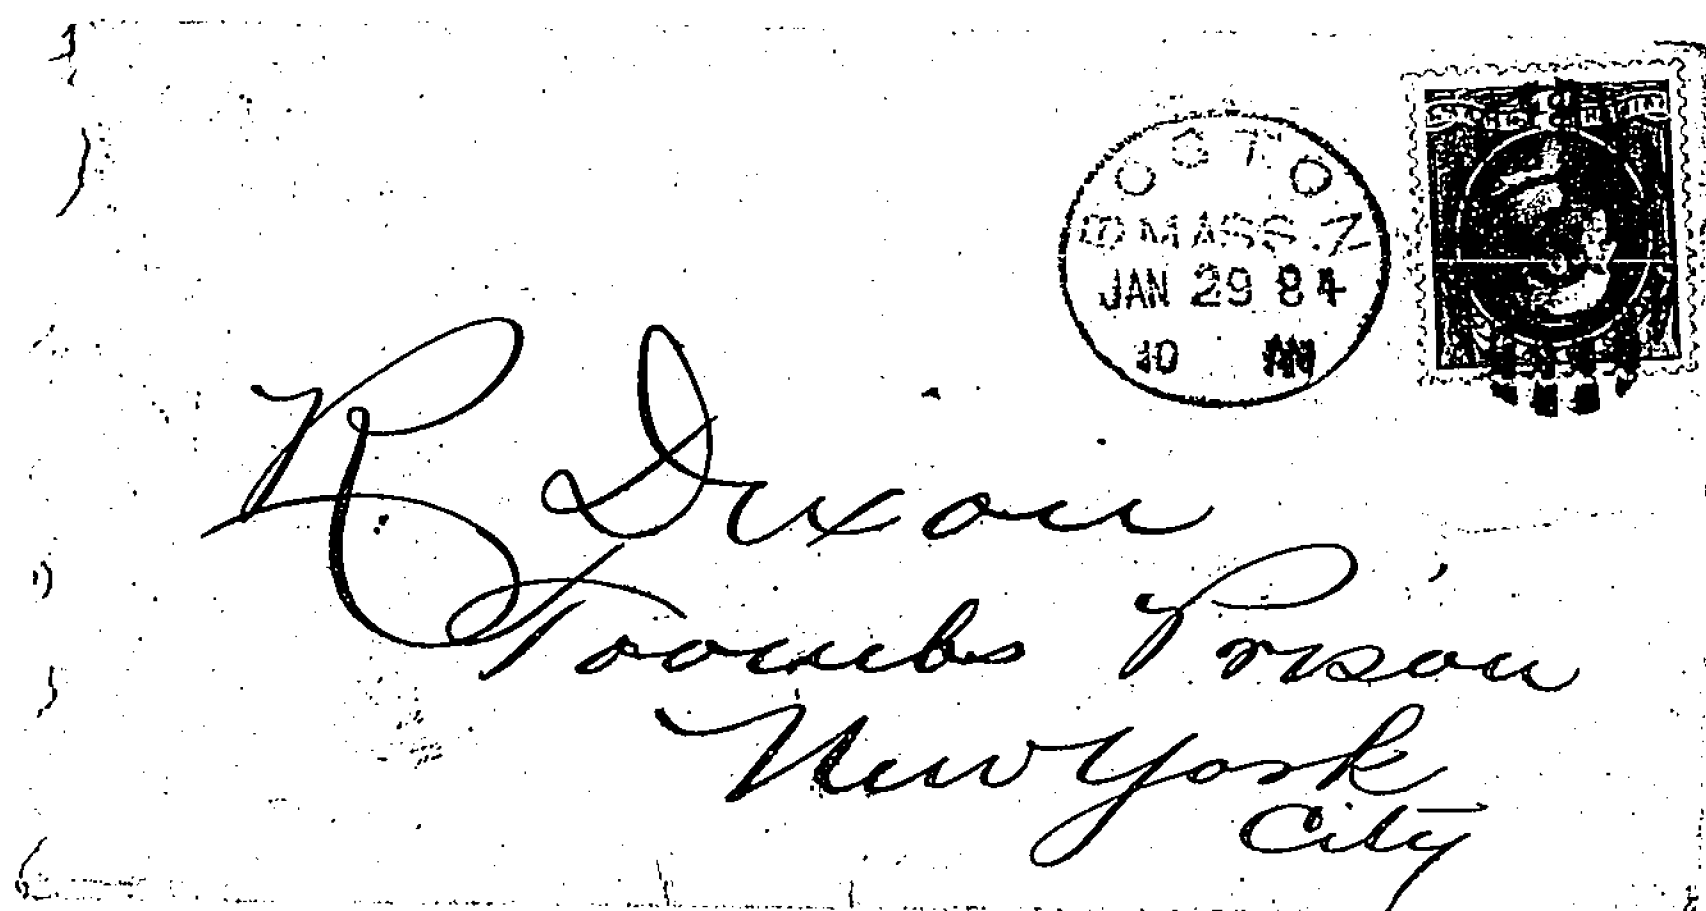 BOSTON
MASS.
JAN 29 84
10 AM
R Dixon
Toombs Prison
New York
City